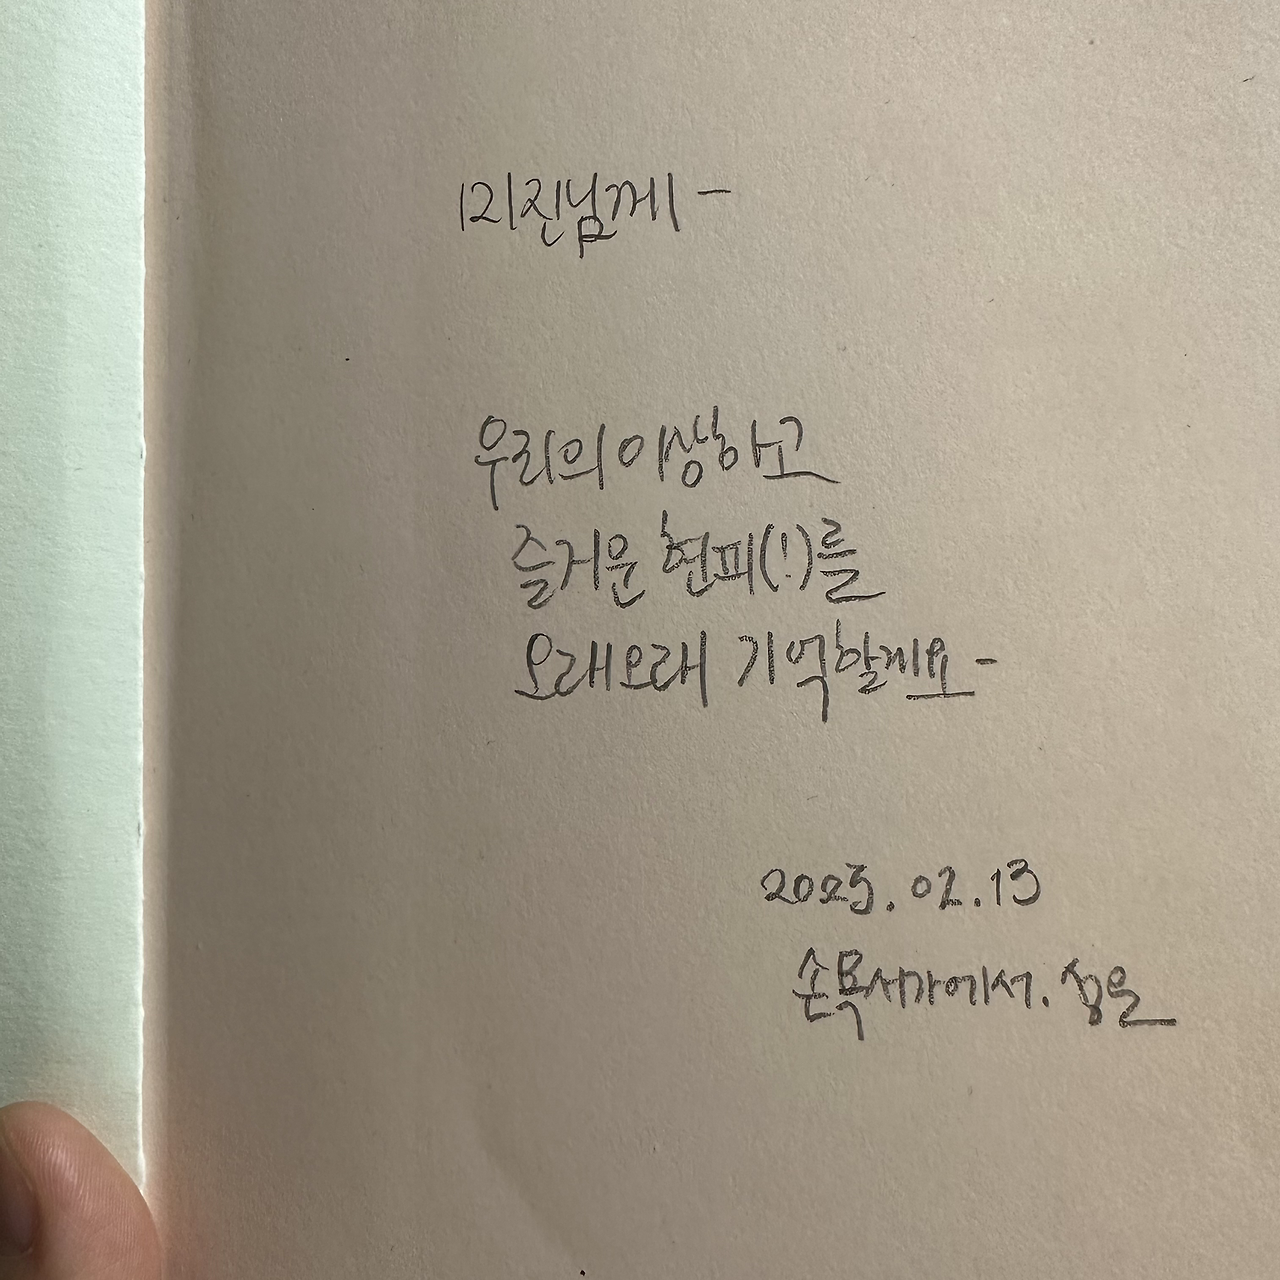 미진님께 -
우리의 이상하고
즐거운 현피(!)를
오래오래 기억할게요 -
2025. 02. 13
손목서가에서.